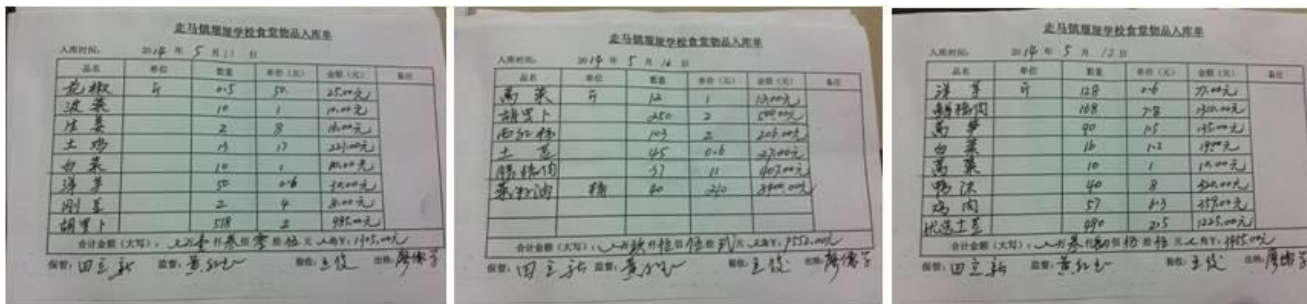 走马镇堰垭学校食堂物品入库单
入库时间: 2014 年 5 月 11 日
品名 单位 数量 单价（元） 金额（元） 备注
花椒 斤 0.5 50. 25.00元
菠菜 10 1 10.00元
生姜 2 8 16.00元
土鸡 13 17 221.00元
白菜 10 1 10.00元
洋芋 50 0.6 30.00元
2 4 8.00元
胡罗卜 518 2 985.00元
合计金额（大写）: 万壹仟叁佰零拾伍元 角￥: 1305.00元
保管: 田立新 监督: 黄红 验收: 王俊 出纳: 廖儒
走马镇堰垭学校食堂物品入库单
入库时间: 2014 年 5 月 16 日
品名 单位 数量 单价（元） 金额（元） 备注
斤 12 1 12.00元
胡罗卜 250 2 500.00元
西红柿 103 2 206.00元
土豆 45 0.6 27.00元
精肉 37 11 407.00元
菜籽油 桶 40 210 8400.00元
合计金额（大写）: 万玖仟伍佰伍拾贰元 角￥: 9552.00元
保管: 田立新 监督: 黄红 验收: 王俊 出纳: 廖儒
走马镇堰垭学校食堂物品入库单
入库时间: 2014 年 5 月 12 日
品名 单位 数量 单价（元） 金额（元） 备注
洋芋 斤 128 0.6 77.00元
精肉 168 7.8 1310.00元
莴笋 90 1.5 135.00元
白菜 16 1.2 19.00元
10 1 10.00元
鸭 40 8 320.00元
鸡肉 57 6.3 359.00元
土豆 490 2.5 1225.00元
合计金额（大写）: 万叁仟肆佰伍拾伍元 角￥: 3455.00元
保管: 田立新 监督: 黄红 验收: 王俊 出纳: 廖儒